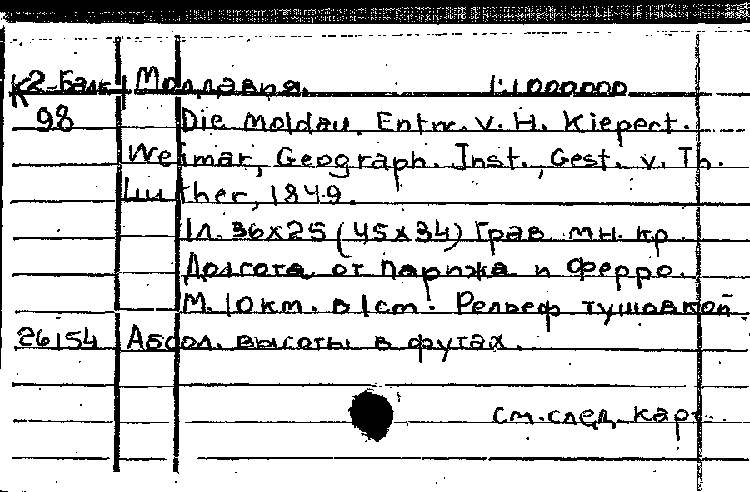 К2-Балк Молдавия. 1:1000000
98 Die Moldau. Entw. v. H. Kiepert.
Weimar, Geograph. Inst., Gest. v. Th.
Luther, 1849.
1л. 36x25 (45x34) Грав. мн. кр.
Долгота от Парижа и Ферро.
М. 10км. в 1cm. Рельеф тушовкой.
26154 Абсол. высоты в футах.
см. след. карт.